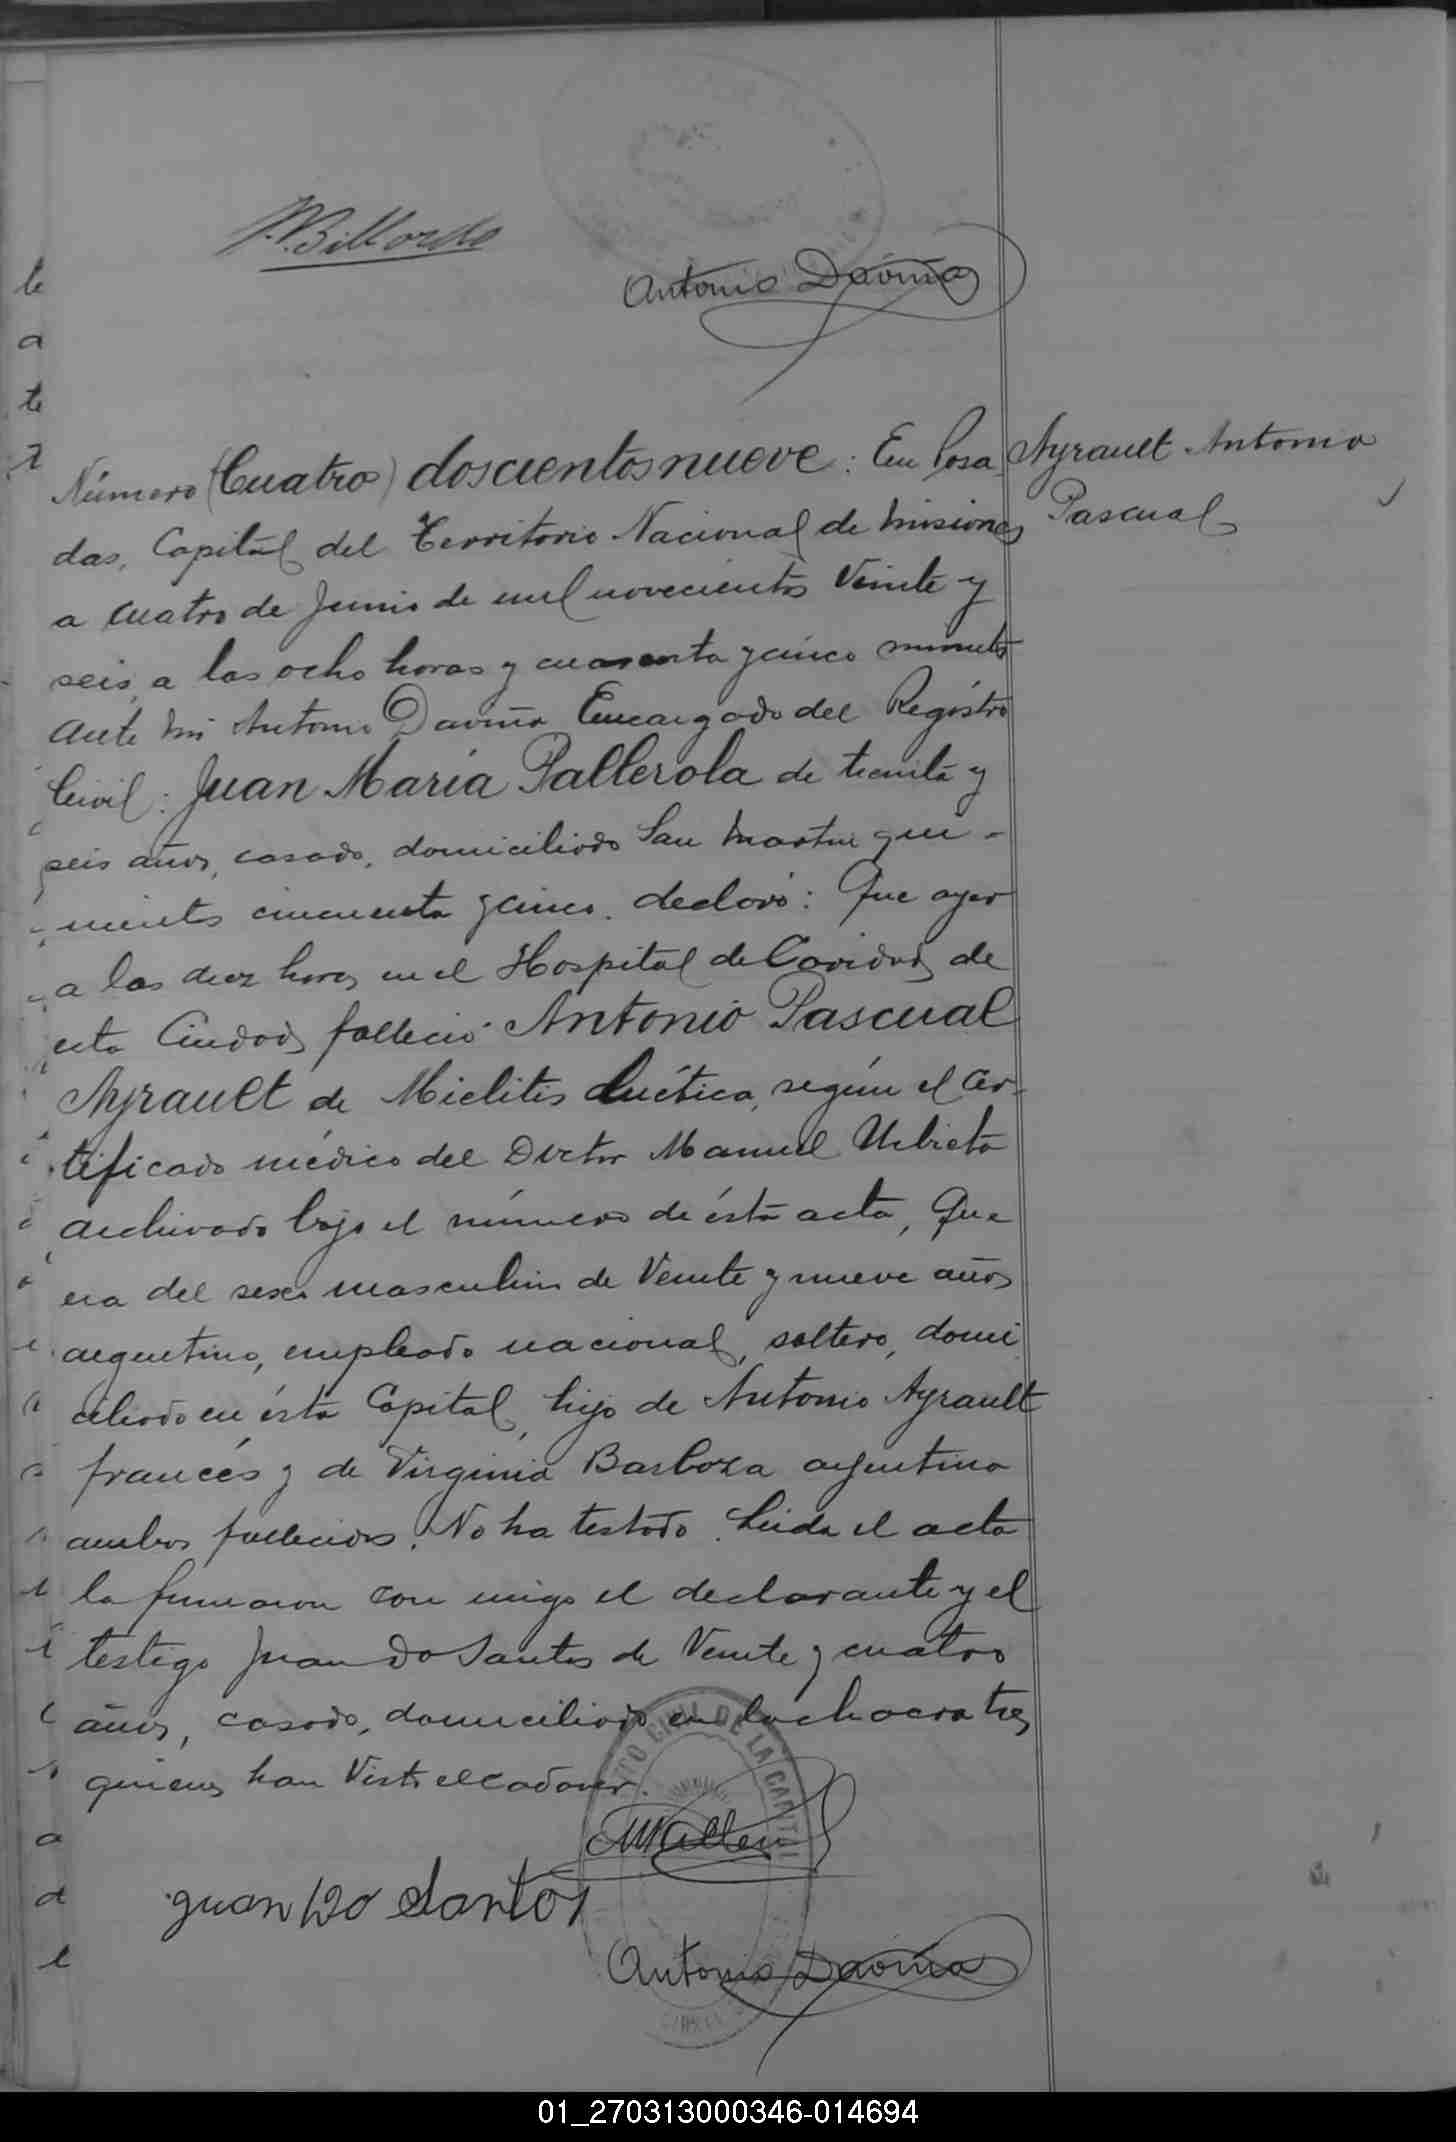 Antonio Daviña
Número (Cuatro) doscientos nueve: En Posa
Ayrault Antonio
Pascual
das, Capital del Territorio Nacional de Misiones
a cuatro de Junio de mil novecientos Veinte y
seis, a las ocho horas y cuarenta y cinco minutos
ante mi Antonio Daviña Encargado del Registro
Civil: Juan María Pallerola de treinta y
seis años, casado, domiciliado San Martin qui-
nientos cincuenta y cinco, declaró: Que ayer
a las diez horas en el Hospital de Caridad de
esta Ciudad falleció Antonio Pascual
Ayrault de Mielitis Luética, según el cer-
tificado médico del Doctor Manuel Urbieta
archivado bajo el número de ésta acta, Que
era del sexo masculino de Veinte y nueve años
argentino, empleado nacional, soltero, domi
ciliado en ésta Capital, hijo de Antonio Ayrault
francés y de Virginia Barboza argentina
ambos fallecidos. No ha testado. Leida el acta
la firmaron con migo el declarante y el
testigo Juan Do Santos de Veinte y cuatro
años, casado, domiciliado en la chacra tres
quienes han Visto el cadaver.
Juan Do Santos
Antonio Daviña
REGISTRO CIVIL DE LA CAPITAL
01_270313000346-014694